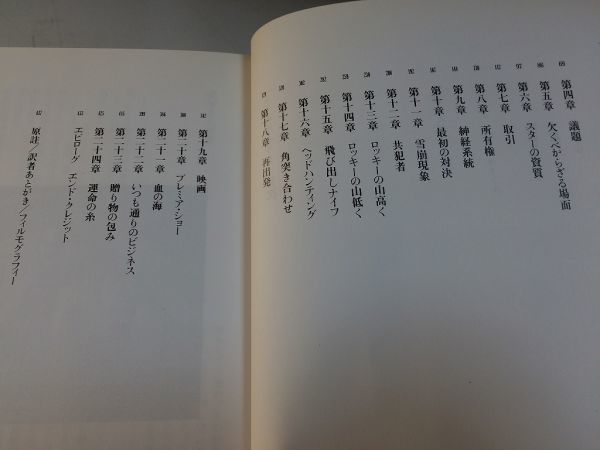 第四章 議題
第五章 欠くべからざる場面
第六章 スターの資質
第七章 取引
第八章 所有権
第九章 神経系統
第十章 最初の対決
第十一章 雪崩現象
第十二章 共犯者
第十三章 ロッキーの山高く
第十四章 ロッキーの山低く
第十五章 飛び出しナイフ
第十六章 ヘッドハンティング
第十七章 角突き合わせ
第十八章 再出発
第十九章 映画
第二十章 プレミア・ショー
第二十一章 血の海
第二十二章 いつも通りのビジネス
第二十三章 贈り物の包み
第二十四章 運命の糸
エピローグ エンド・クレジット
原註/訳者あとがき/フィルモグラフィー